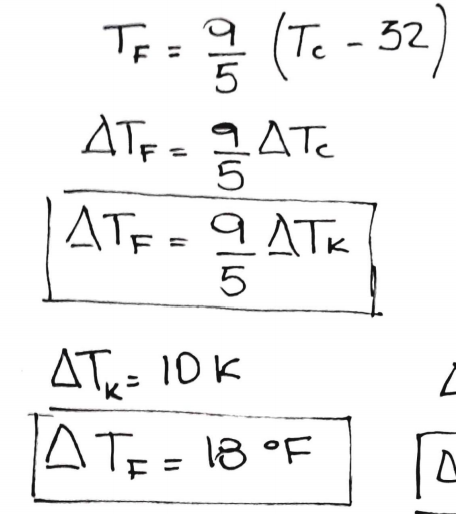 T_F = 9/5 (T_C - 32)
ΔT_F = 9/5 ΔT_C
ΔT_F = 9/5 ΔT_K
ΔT_K = 10 K
ΔT_F = 18 °F